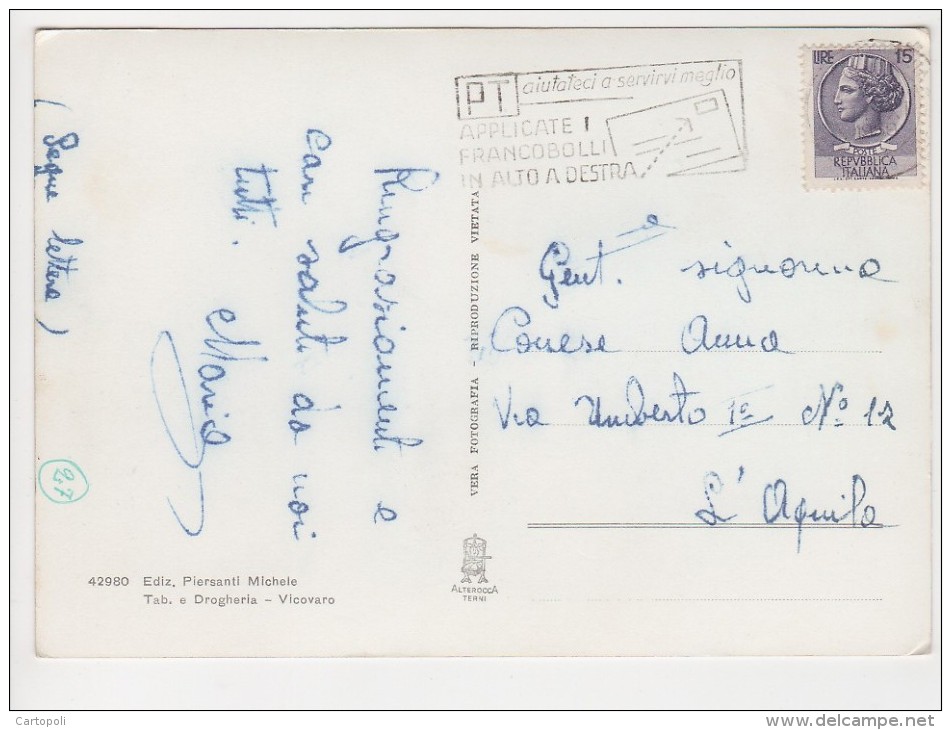 (Segue lettera)
Ringraziamenti e
cari saluti da noi
tutti.
Maria
27
42980 Ediz. Piersanti Michele
Tab. e Drogheria - Vicovaro
VERA FOTOGRAFIA - RIPRODUZIONE VIETATA
ALTEROCCA
TERNI
PT aiutateci a servirvi meglio
APPLICATE I
FRANCOBOLLI
IN ALTO A DESTRA
LIRE 15
POSTE
REPVBBLICA
ITALIANA
Gent.a signorina
Conese Anna
Via Umberto I° N° 12
L'Aquila
Cartopoli
www.delcampe.net